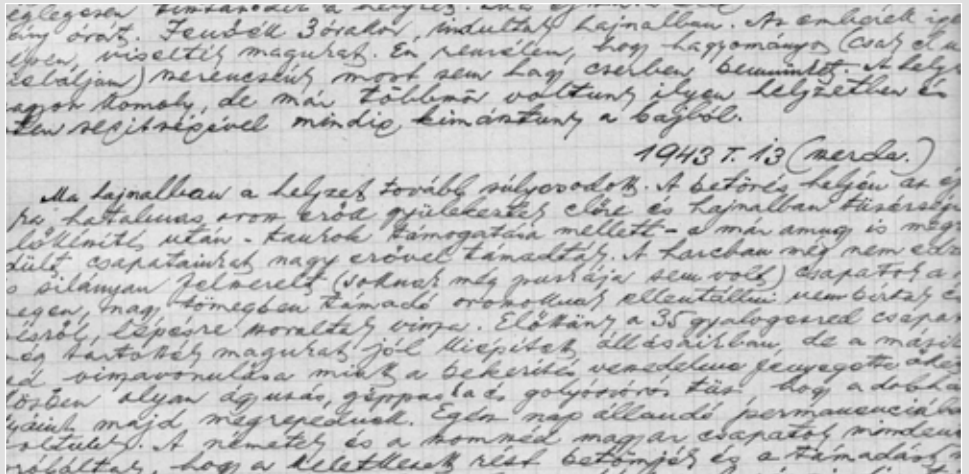 véglegesen
óráig. Jenőék 3 órakor, indultak hajnalban. Az emberek
viselték magukat. Én remélem, hogy hagyományos (csak el ne
kiabáljam) szerencsénk most sem hagy cserben bennünket. A hely
nagyon komoly, de már többször voltunk ilyen helyzetben és
Isten segítségével mindig kimásztunk a bajból.
1943 I. 13 (szerda.)
Ma hajnalban a helyzet tovább súlyosodott. A betörés helyén az
hatalmas orosz erők gyülekeztek előre és hajnalban tüzérségi
előkészítés után - tankok támogatása mellett - a már amúgy is meg
dült csapatainkat nagy erővel támadták. A harcban még nem
s silányan felszerelt (soknak még puskája sem volt) csapatok a
nagy tömegben támadó oroszoknak ellentállni nem bírtak és
lépésre szorultak vissza. Előttünk a 35 gyalogezred csapat
még tartották magukat jól kiépített állásaikban, de a másik
visszavonulása miatt a bekerítés veszedelme fenyegette őket
olyan ágyúzás, géppuska és golyószóró tűz hogy a dobhá
majd megrepednek. Egész nap állandó permanenciában
voltunk. A németek és a szomszéd magyar csapatok minden
próbáltak, hogy a keletkezett rést betömjék és a támadást